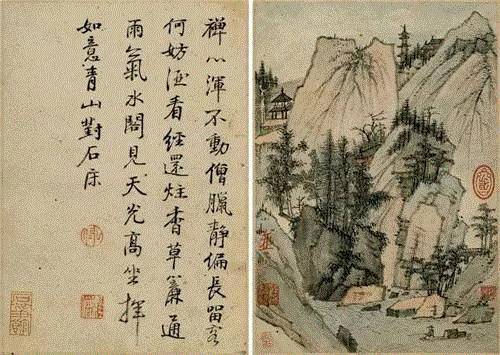 禪心渾不動僧臘靜偏長留客
何妨酒看經還炷香草簾通
雨氣水閣見天光高坐揮
如意青山對石床